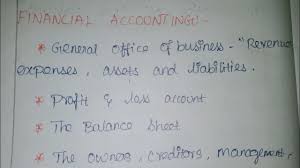 FINANCIAL ACCOUNTING:-
* General office of business - "Revenue
expenses, assets and liabilities.
* Profit & loss account
* The Balance Sheet
* The owner, creditors, management -